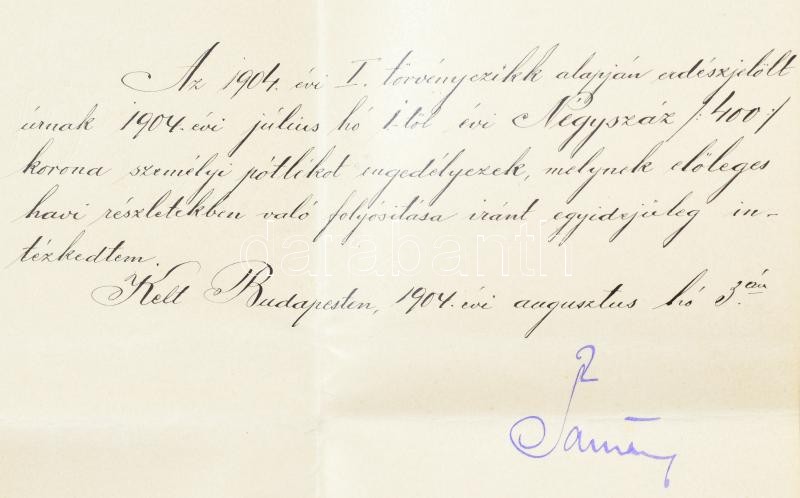 Az 1904. évi I. törvényczikk alapján erdészjelölt
úrnak 1904. évi július hó 1-től évi Négyszáz /: 400 :/
korona személyi pótlékot engedélyezek, melynek előleges
havi részletekben való folyósítása iránt egyidejüleg in-
tézkedtem.
Kelt Budapesten, 1904. évi augusztus hó 3.án
darabanth